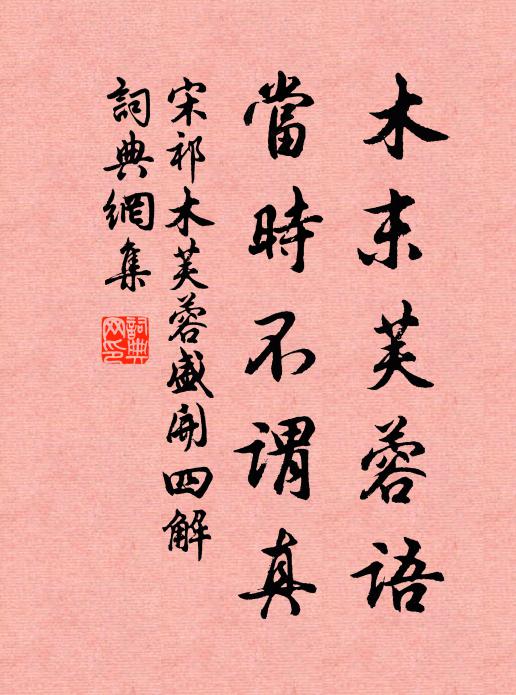 木末芙蓉語
當時不謂真
宋祁木芙蓉盛開四解
詞典網集
詞典
网印